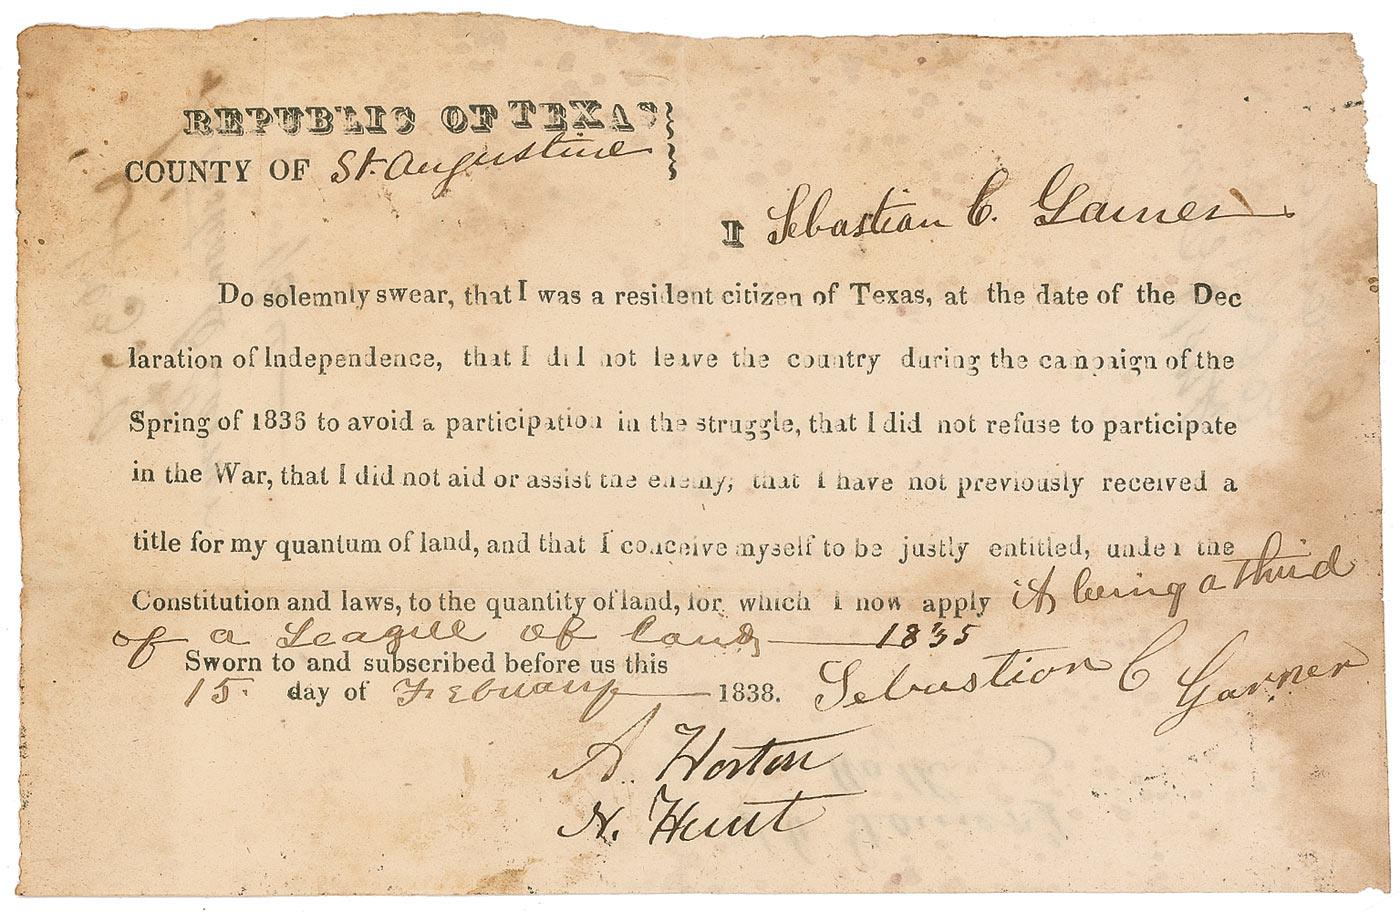 REPUBLIC OF TEXAS
COUNTY OF St. Augustine
I Sebastian C. Garner
Do solemnly swear, that I was a resident citizen of Texas, at the date of the Dec
laration of Independence, that I did not leave the country during the campaign of the
Spring of 1836 to avoid a participation in the struggle, that I did not refuse to participate
in the War, that I did not aid or assist the enemy; that I have not previously received a
title for my quantum of land, and that I conceive myself to be justly entitled, under the
Constitution and laws, to the quantity of land, for which I now apply it being a third
of a League of land 1835
Sworn to and subscribed before us this
15 day of February 1838. Sebastion C Garner
A. Horton
N. Hunt